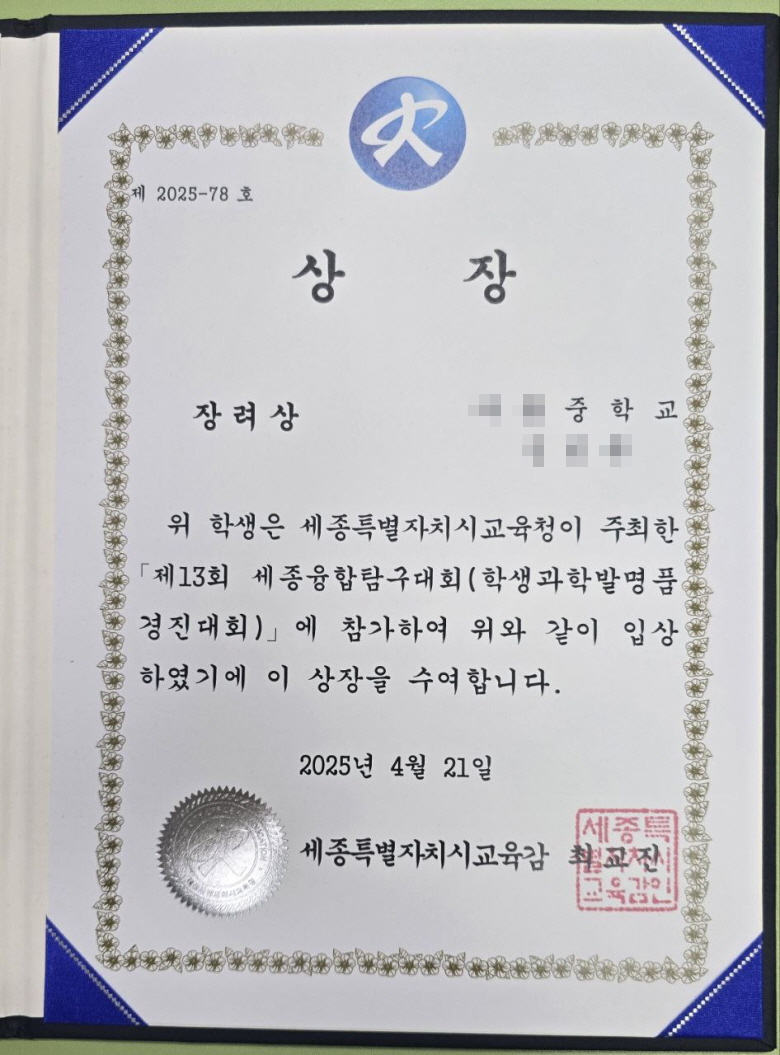 제 2025-78 호
상 장
장려상
중학교
위 학생은 세종특별자치시교육청이 주최한
「제13회 세종융합탐구대회(학생과학발명품
경진대회)」에 참가하여 위와 같이 입상
하였기에 이 상장을 수여합니다.
2025년 4월 21일
세종특별자치시교육감 최교진
세종특
별자치시
교육감인